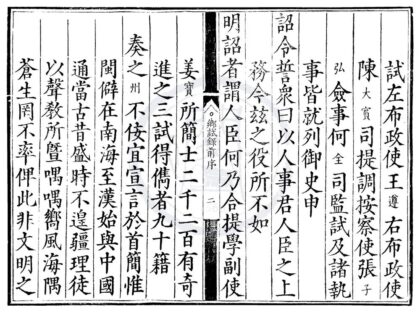 試左布政使王遵右布政使
陳大賓司提調按察使張子
弘僉事何全司監試及諸執
事皆就列御史申
詔令誓衆曰以人事君人臣之上
務今茲之役所不如
明詔者謂人臣何乃合提學副使
鄉試錄前序 二
姜寶所簡士二千二百有奇
進之三試得儁者九十籍
奏之州不佞宜宣言於首簡惟
閩僻在南海至漢始與中國
通當古昔盛時不遑疆理徒
以聲敎所曁喁喁嚮風海隅
蒼生罔不率俾此非文明之